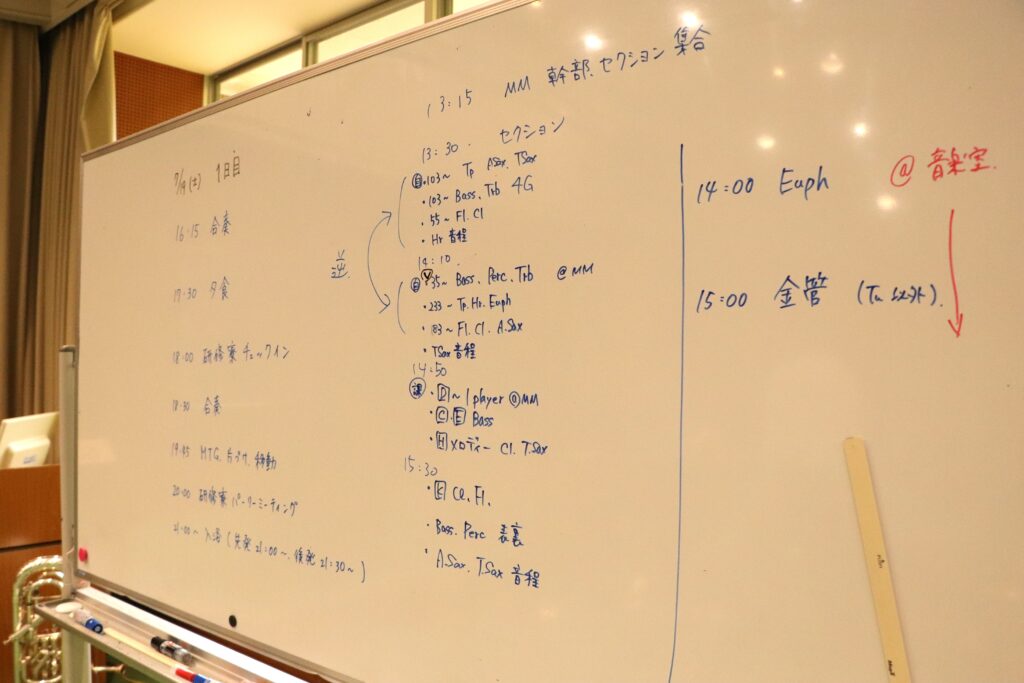 7/19(土) 1日目
16:15 合奏
17:30 夕食
18:00 研修寮チェックイン
18:30 合奏
19:45 MTG. 片づけ. 移動
20:00 研修寮 パーリーミーティング
21:00~ 入浴 (先発 21:00~. 後発 21:30~)
13:15 MM 幹部. セクション 集合
13:30. セクション
逆
自.103~ Tp ASax. TSax
・103~ Bass. Trb 4G
・55~ Fl. Cl
・Hr 音程
14:10.
自 V 35~ Bass. Perc. Trb @MM
・233~ Tp. Hr. Euph
・183~ Fl. Cl. A.Sax
・TSax 音程
14:50
課 ・D~ 1player @MM
・C.E Bass
・H メロディー Cl. T.Sax
15:30
・E Cl. Fl.
・Bass. Perc 表裏
・A.Sax. T.Sax 音程
14:00 Euph @ 音楽室.
15:00 金管 (Tu以外).